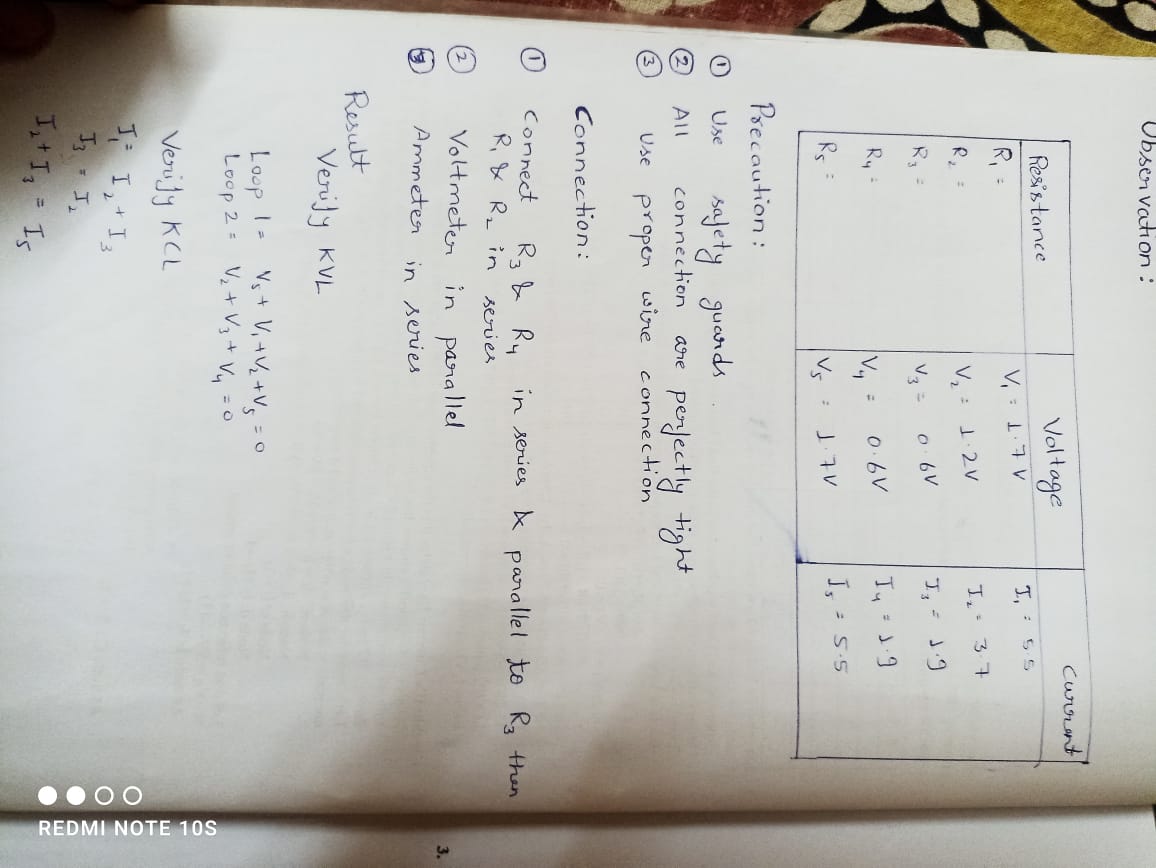 Observation :
Resistance Voltage Current
R₁ = V₁ = 1.7V I₁ = 5.5
R₂ = V₂ = 1.2V I₂ = 3.7
R₃ = V₃ = 0.6V I₃ = 1.9
R₄ = V₄ = 0.6V I₄ = 1.9
R₅ = V₅ = 1.7V I₅ = 5.5
Precaution :
① Use safety guards .
② All connection are perfectly tight
③ Use proper wire connection
Connection :
① Connect R₃ & R₄ in series & parallel to R₃ then
R₁ & R₂ in series
② Voltmeter in parallel
Ammeter in series
Result
Verify KVL
Loop 1 = Vs + V₁ + V₂ + V₅ = 0
Loop 2 = V₂ + V₃ + V₄ = 0
Verify KCL
I₁ = I₂ + I₃
I₃ = I₂
I₂ + I₃ = I₅
3.
REDMI NOTE 10S